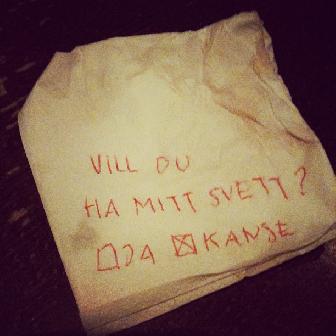 VILL DU
HA MITT SVETT?
☐JA ☒KANSE